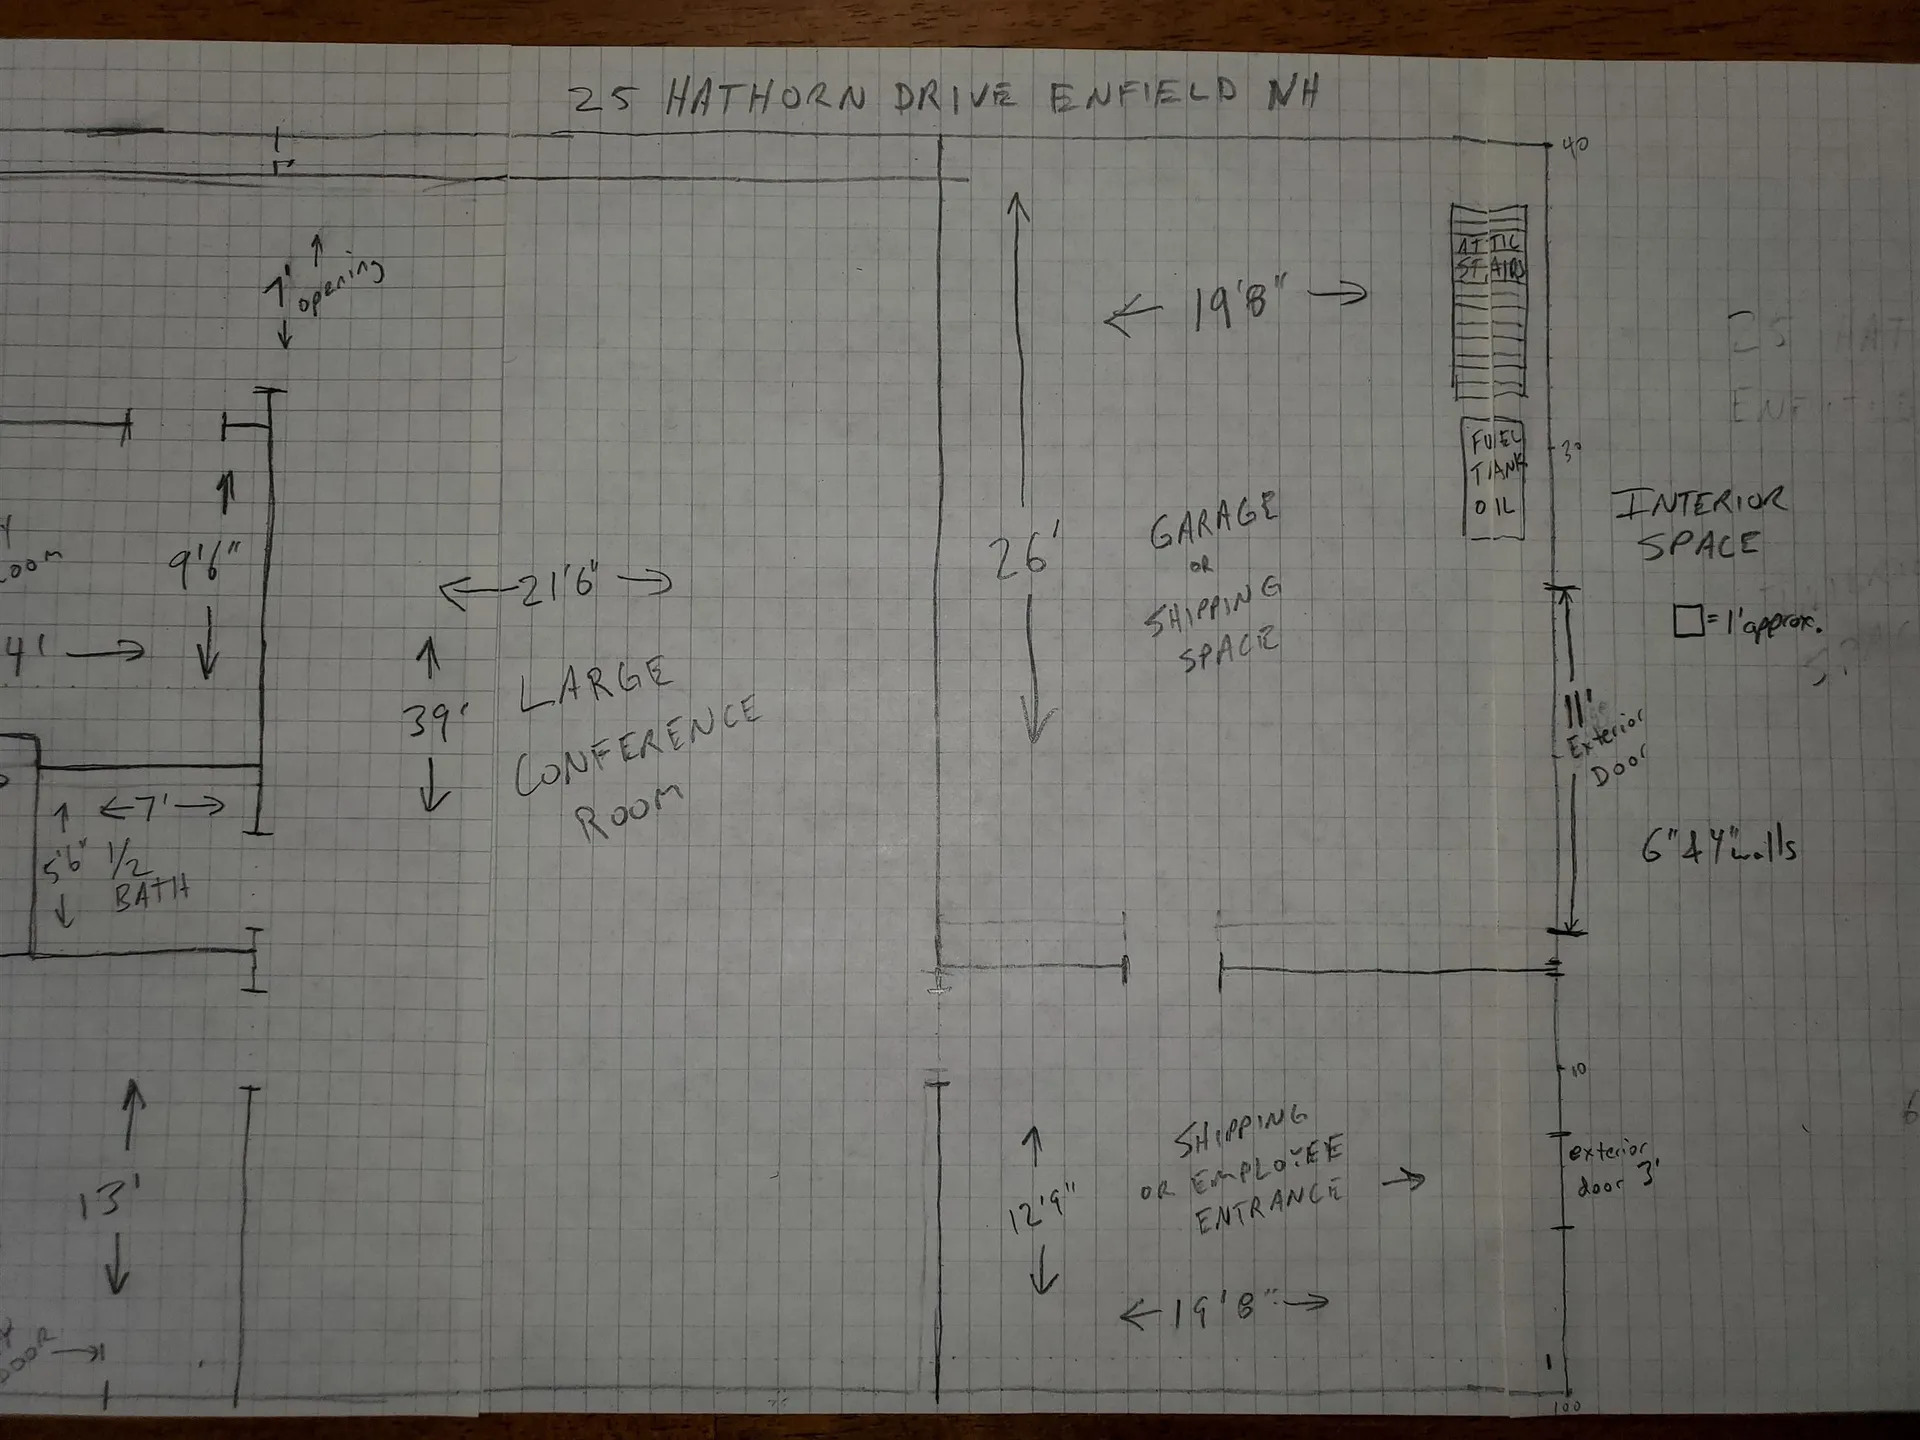 25 HATHORN DRIVE ENFIELD NH
40
7'
opening
19'8"
ATTIC
STAIRS
25 HAT
FUEL
TANK
OIL
30
INTERIOR
SPACE
GARAGE
OR
SHIPPING
SPACE
26'
9'6"
21'6"
= 1' approx.
4'
39'
LARGE
CONFERENCE
ROOM
11'
Exterior
DOOR
7'
5'6" 1/2
BATH
6" & 4" walls
10
SHIPPING
OR EMPLOYEE
ENTRANCE
exterior
door 3'
13'
12'9"
19'8"
100